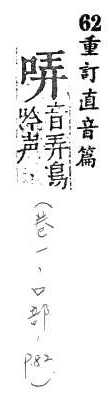 62重訂直音篇
哢音弄鳥
吟声
（卷一、口部、P.82）